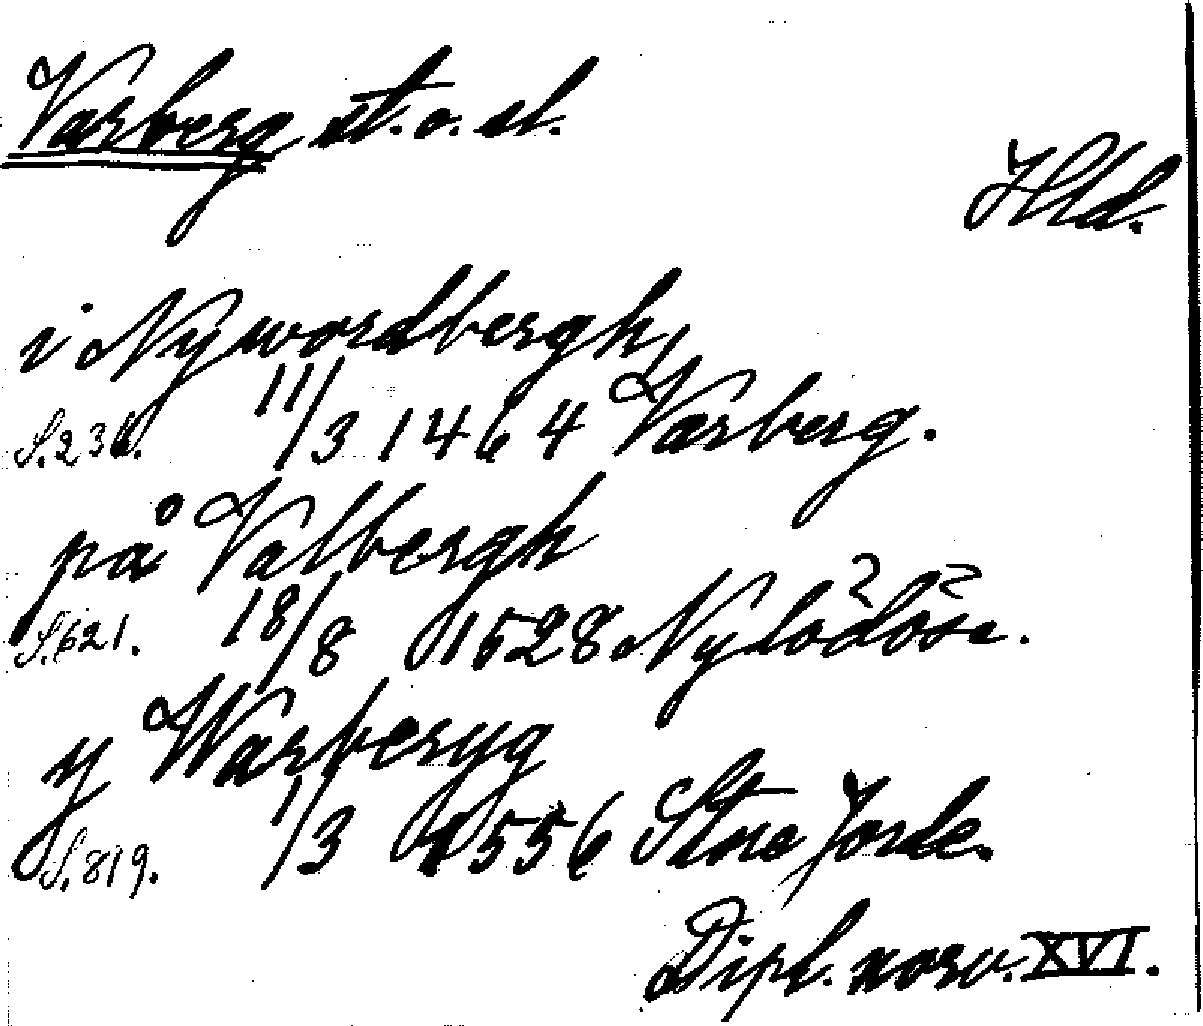 Varberg st. o. sl.
Hld.
i Nÿwordbergh,
S. 236. 11/3 1464 Varberg.
på Valbergh
S. 621. 18/8 1528 Nylödöse.
y Warberyg
S. 819. 1/3 1556 Store Jorde.
Dipl. norv. XVI.